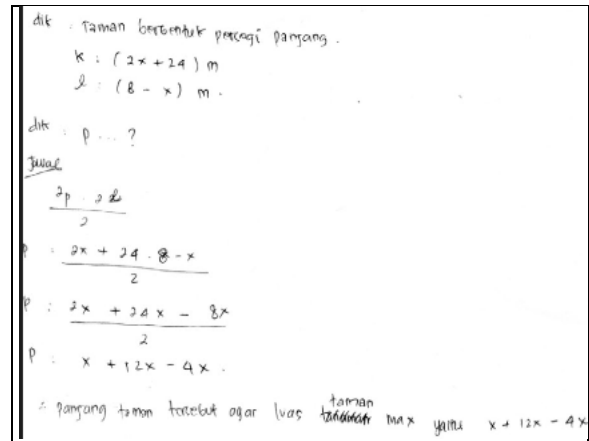 dik : Taman berbentuk persegi panjang .
k : ( 2x + 24 ) m
l : ( 8 - x ) m .
dit : p ... ?
Jwab
2p . 2l
2
p : 2x + 24 . 8 - x
2
p : 2x + 24x - 8x
2
p : x + 12x - 4x .
∴ panjang taman tersebut agar luas taman max yaitu x + 12x - 4x